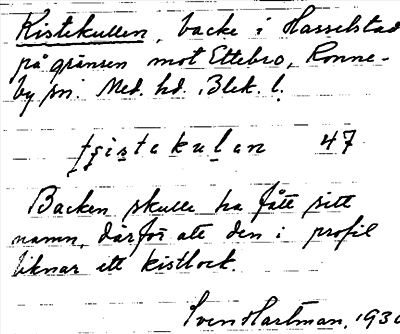 Kistekullen, backe i Hasselstad
på gränsen mot Ettebro, Ronne-
by sn. Med. hd. Blek. l.
tʃistəkulan 47
Backen skulle ha fått sitt
namn, därför att den i profil
liknar ett kistlock.
Sven Hartman, 193